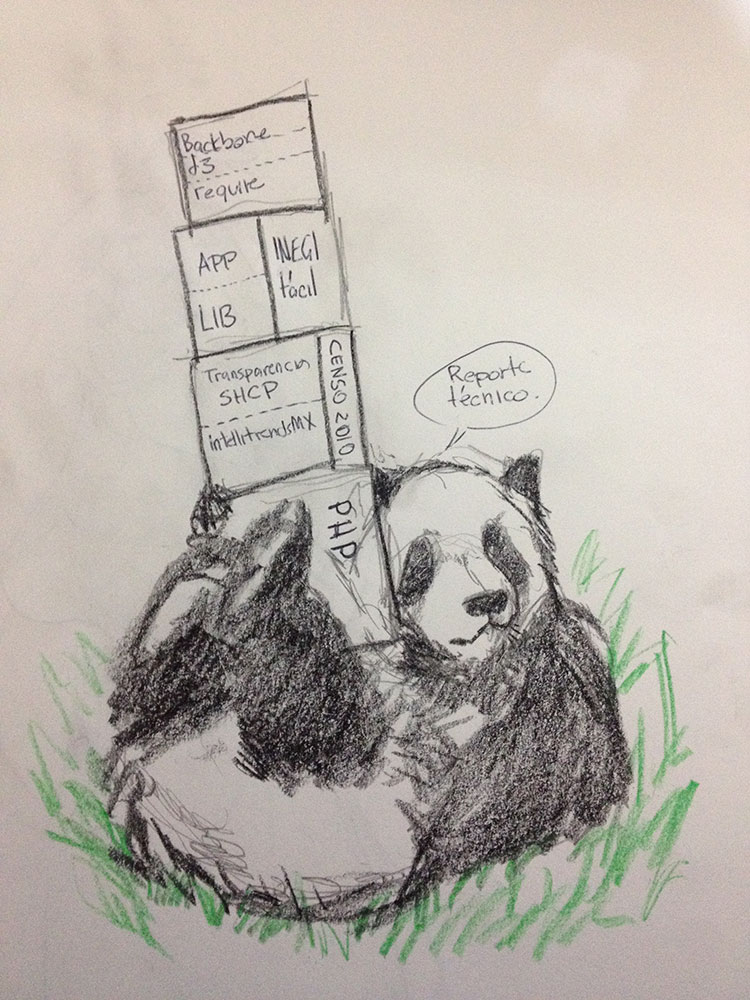 Backbone
d3
require
APP
LIB
INEGI
fácil
Transparencia
SHCP
intelitrendsMX
CENSO 2010
Reporte
técnico.
PHP